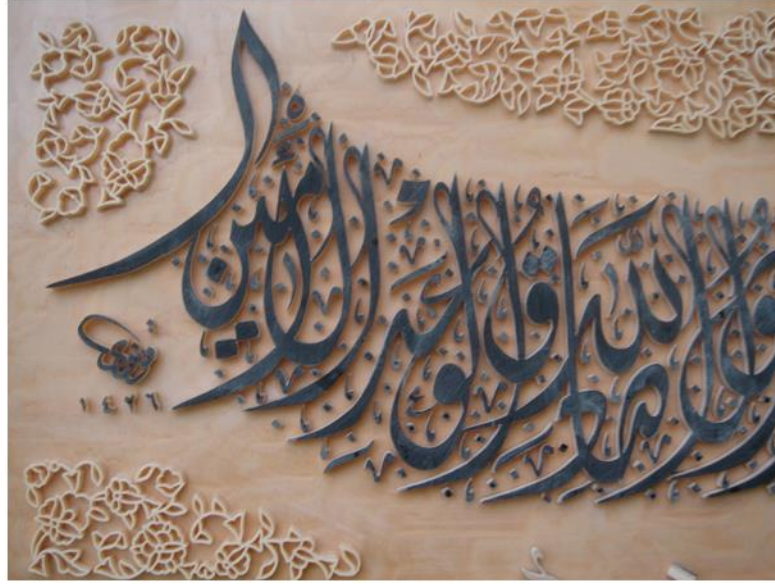 رسول الله صادق الوعد الأمين
١٤٢٦